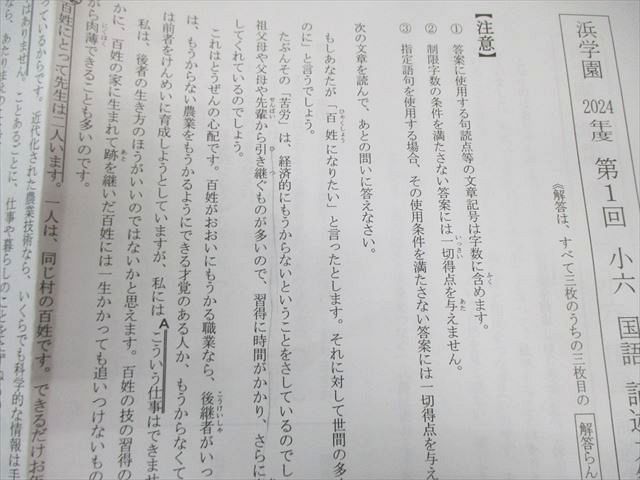 浜学園 2024年度 第1回 小六 国語 記述
《解答は、すべて三枚のうちの三枚目の 解答らん
【注意】
① 答案に使用する句読点等の文章記号は字数に含めます。
② 制限字数の条件を満たさない答案には一切得点を与えません。
③ 指定語句を使用する場合、その使用条件を満たさない答案には一切得点を与え
次の文章を読んで、あとの問いに答えなさい。
もしあなたが「百姓になりたい」と言ったとします。それに対して世間の多
のに」と言うでしょう。
たぶんその「苦労」は、経済的にもうからないということをさしているのでし
祖父母や父母や先輩から引き継ぐものが多いので、習得に時間がかかり、さらに
してくれているのでしょう。
これはとうぜんの心配です。百姓がおおいにもうかる職業なら、後継者がいっ
は、もうからない農業をもうかるようにできる才覚のある人か、もうからなくて
は前者をけんめいに育成しようとしていますが、私にはAこういう仕事はできませ
私は、後者の生き方のほうがいいのではないかと思えます。百姓の技の習得の
かに、百姓の家に生まれて跡を継いだ百姓には一生かかっても追いつけないもの
から肉薄できることも多いのです。
百姓にとって先生は二人います。一人は、同じ村の百姓です。できるだけお
っているからです。近代化された農業技術なら、いくらでも科学的な情報は手
はありません。ことあるごとに、仕事や暮らしのことを